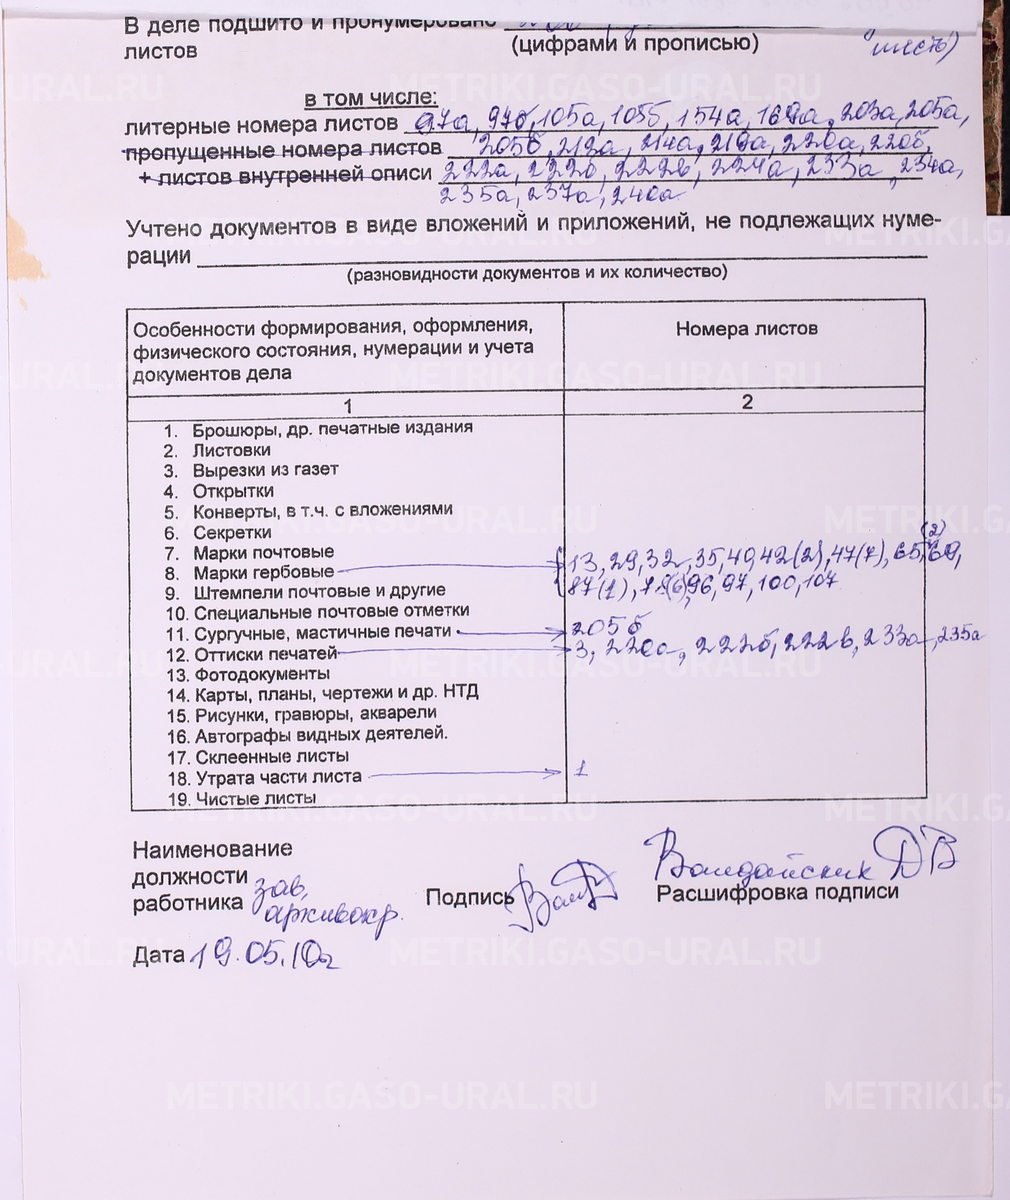 В деле подшито и пронумеровано
листов (цифрами и прописью) шесть)
в том числе:
литерные номера листов 97а, 97б, 105а, 105б, 154а, 169а, 203а, 205а,
пропущенные номера листов 205б, 212а, 214а, 219а, 220а, 220б,
+ листов внутренней описи 222а, 222б, 222в, 224а, 233а, 234а,
235а, 237а, 240а
Учтено документов в виде вложений и приложений, не подлежащих нуме-
рации
(разновидности документов и их количество)
Особенности формирования, оформления, физического состояния, нумерации и учета документов дела
Номера листов
1 2
1. Брошюры, др. печатные издания
2. Листовки
3. Вырезки из газет
4. Открытки
5. Конверты, в т.ч. с вложениями
6. Секретки
7. Марки почтовые
8. Марки гербовые 13, 29, 32, 35, 40, 42(2), 47(7), 65, 69(2),
87(1), 96, 97, 100, 107
9. Штемпели почтовые и другие
10. Специальные почтовые отметки
11. Сургучные, мастичные печати 205б
12. Оттиски печатей 3, 220а, 222б, 222в, 233а, 235а
13. Фотодокументы
14. Карты, планы, чертежи и др. НТД
15. Рисунки, гравюры, акварели
16. Автографы видных деятелей.
17. Склеенные листы
18. Утрата части листа 1
19. Чистые листы
Наименование
должности
работника зав. архивохр.
Подпись
Расшифровка подписи
Дата 19.05.10г
METRIKI.GASO-URAL.RU